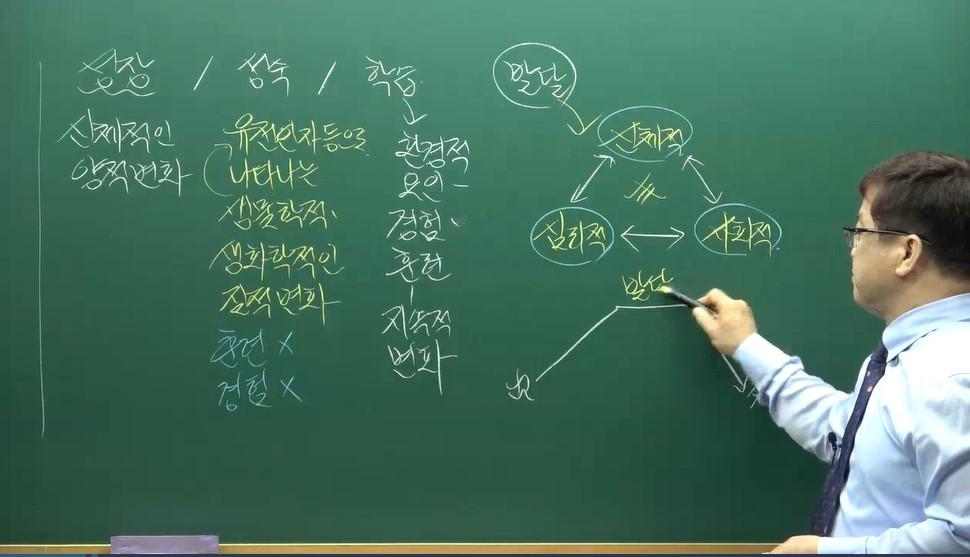 성장 / 성숙 / 학습
신체적인
양적변화
유전인자등으로
나타나는
생물학적
생화학적인
질적변화
훈련 X
경험 X
환경적
요인
경험
훈련
지속적
변화
발달
신체적
심리적
사회적
발달